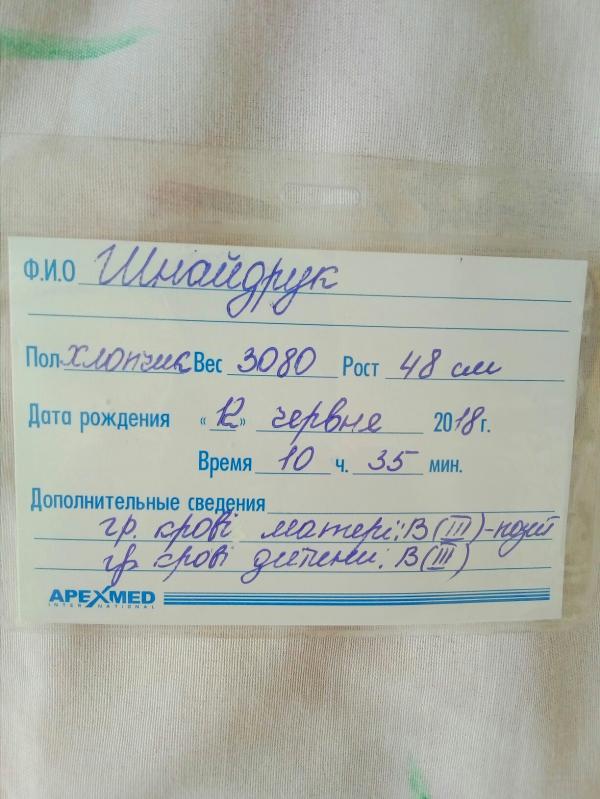 Ф.И.О Шнайдрук
Пол хлопчик Вес 3080 Рост 48 см
Дата рождения «12» червня 2018 г.
Время 10 ч. 35 мин.
Дополнительные сведения
гр. крові матері: В(III)-позит
гр крові дитини: В(III)
APEXMED
INTERNATIONAL